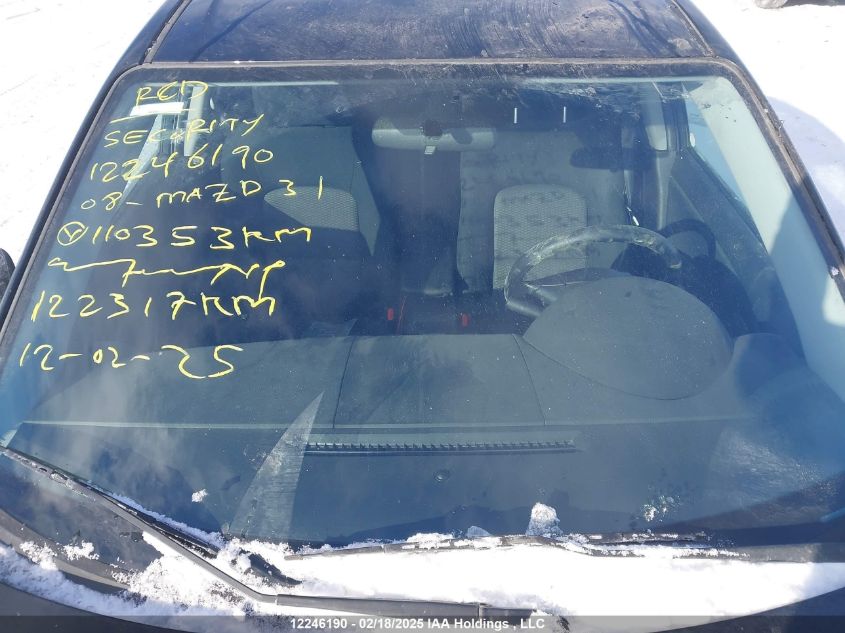 RCD
SECURITY
12246190
08- MAZD 3 |
110353KM
122317KM
12-02-25
12246190 - 02/18/2025 IAA Holdings , LLC